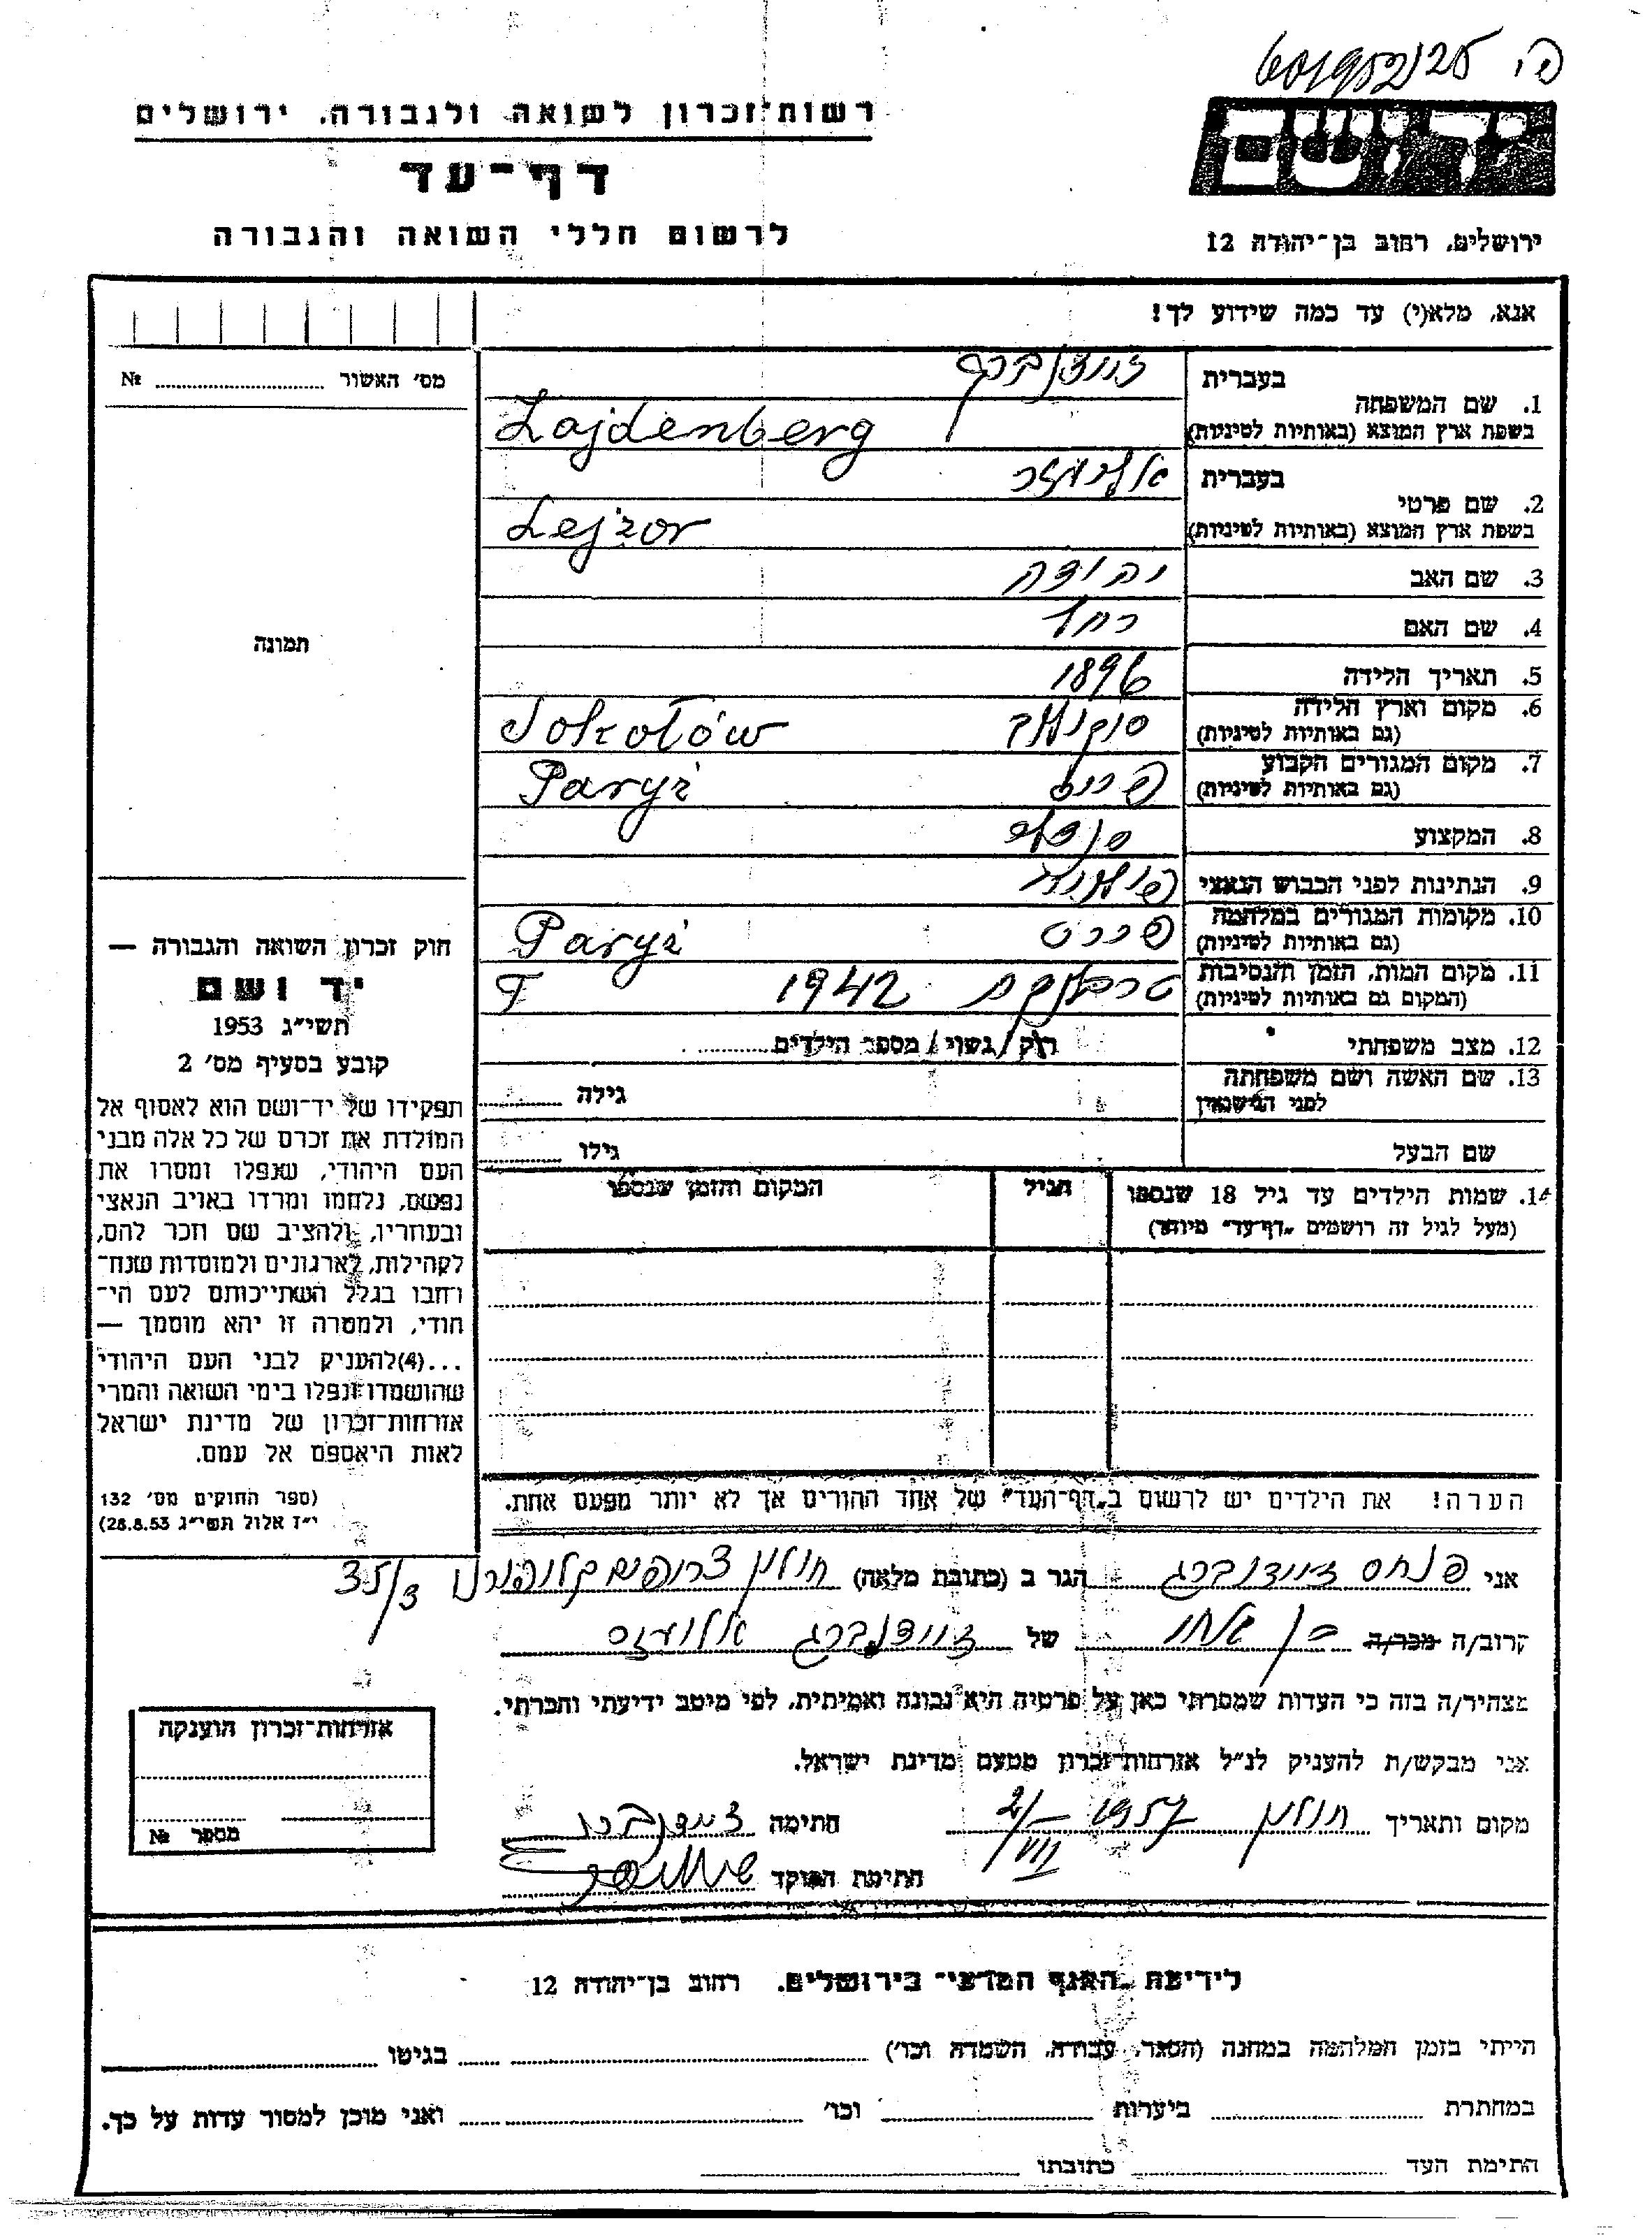 רשות־זכרון לשואה ולגבורה, ירושלים
דף־עד
לרשום חללי השואה והגבורה
יד ושם
ירושלים, רחוב בן־יהודה 12
אנא, מלא(י) עד כמה שידוע לך!
מס׳ האשור № ........
תמונה
בעברית זיידנברג
1. שם המשפחה
בשפת ארץ המוצא (באותיות לטיניות) Zajdenberg
בעברית אליעזר
2. שם פרטי
בשפת ארץ המוצא (באותיות לטיניות) Lejzor
3. שם האב יהודה
4. שם האם רחל
5. תאריך הלידה 1896
6. מקום וארץ הלידה סוקולוב Sokołów
(גם באותיות לטיניות)
7. מקום המגורים הקבוע פריס Paryż
(גם באותיות לטיניות)
8. המקצוע סנדלר
9. הנתינות לפני הכבוש הנאצי פולנית
10. מקומות המגורים במלחמה פריס Paryż
(גם באותיות לטיניות)
11. מקום המות, הזמן והנסיבות טרבלינקה 1942 T
(המקום גם באותיות לטיניות)
12. מצב משפחתי רוק/נשוי/מספר הילדים........
13. שם האשה ושם משפחתה
לפני הנישואין גילה ........
שם הבעל גילו ........
14. שמות הילדים עד גיל 18 שנספו הגיל המקום והזמן שנספו
(מעל לגיל זה רושמים „דף־עד" מיוחד)
חוק זכרון השואה והגבורה —
יד ושם
תשי״ג 1953
קובע בסעיף מס׳ 2
תפקידו של יד־ושם הוא לאסוף אל
המולדת את זכרם של כל אלה מבני
העם היהודי, שנפלו ומסרו את
נפשם, נלחמו ומרדו באויב הנאצי
ובעוזריו, ולהציב שם וזכר להם,
לקהילות, לארגונים ולמוסדות שנח־
רבו בגלל השתייכותם לעם הי־
הודי, ולמטרה זו יהא מוסמך —
...(4)להעניק לבני העם היהודי
שהושמדו ונפלו בימי השואה והמרי
אזרחות־זכרון של מדינת ישראל
לאות היאספם אל עמם.
(ספר החוקים מס׳ 132
י״ז אלול תשי״ג 28.8.53)
הערה! את הילדים יש לרשום ב„דף־העד" של אחד ההורים אך לא יותר מפעם אחת.
אני פנחס זיידנברג הגר ב (כתובת מלאה) חולון 35/3
קרוב/ה מכר/ה בן אחי של זיידנברג אליעזר
מצהיר/ה בזה כי העדות שמסרתי כאן על פרטיה היא נכונה ואמיתית, לפי מיטב ידיעתי והכרתי.
אני מבקש/ת להעניק לנ״ל אזרחות־זכרון מטעם מדינת ישראל.
מקום ותאריך חולון 1957 2/VII חתימה זיידנברג
חתימת הפוקד
אזרחות־זכרון הוענקה
מספר №
לידיעת „האגף המדעי" בירושלים, רחוב בן־יהודה 12
הייתי בזמן המלחמה במחנה (הסגר, עבודה, השמדה וכו׳) ........ בגיטו ........
במחתרת ........ ביערות ........ וכו׳ ........ ואני מוכן למסור עדות על כך.
חתימת העד ........ כתובתו ........